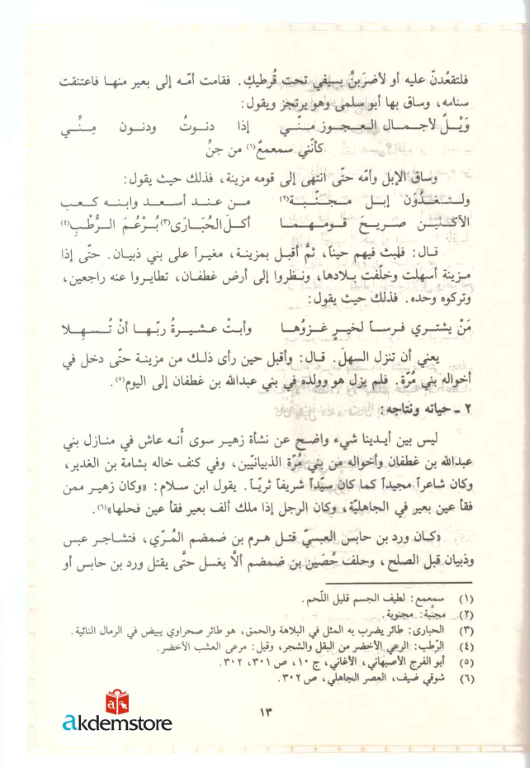 فلتقعدنّ عليه أو لأضربنّ بسيفي تحت قُرطيكِ. فقامت أمّه إلى بعير منها فاعتنقت
سنامه، وساق بها أبو سلمى وهو يرتجز ويقول:
وَيْـلٌ لأجمـال العجـوز مـنّـي إذا دنـوتُ ودنـون مِنِّـي
كأنّني سمعمعٌ(١) من جنِّ
وساق الإبل وأمّه حتّى انتهى إلى قومه مزينة، فذلك حيث يقول:
ولـتـغـدُوَن إبـل مـجـنّـبـة(٢) مـن عـنـد أسـعـد وابـنـه كـعـب
الآكـلـيـن صـريـح قـومـهـمـا أكـلَ الحُبَارَى(٣) بُـرْعُـمَ الـرُّطْبِ(٤)
قال: فلبث فيهم حيناً، ثمَّ أقبل بمزينة، مغيراً على بني ذبيان. حتّى إذا
مزينة أسهلت وخلّفت بلادها، ونظروا إلى أرض غطفان، تطايروا عنه راجعين،
وتركوه وحده. فذلك حيث يقول:
مَنْ يشتـري فـرسـاً لخيـرٍ غـزوُهـا وأبـتْ عشيـرةُ ربّهـا أنْ تُـسـهـلا
يعني أن تنزل السهلَ. قال: وأقبل حين رأى ذلـك من مزينـة حتّى دخل في
أخواله بني مُرّة. فلم يزل هو وولده في بني عبدالله بن غطفان إلى اليوم(٥).
٢ ـ حياته ونتاجه:
ليس بين أيدينا شيء واضح عن نشأة زهير سوى أنه عاش في منازل بني
عبدالله بن غطفان وأخواله من بني مُرّة الذبيانيّين، وفي كنف خاله بشامة بن الغدير،
وكان شاعراً مجيداً كما كان سيّداً شريفاً ثريّاً. يقول ابن سلام: «وكان زهير ممن
فقأ عين بعير في الجاهليّة، وكان الرجل إذا ملك ألف بعير فقأ عين فحلها»(٦).
«كـان ورد بن حابس العبسيّ قتل هرم بن ضمضم المُرّي، فتشاجر عبس
وذبيان قبل الصلح، وحلف حُصَين بن ضمضم ألاّ يغسل حتَّى يقتل ورد بن حابس أو
(١) سمعمع: لطيف الجسم قليل اللّحم.
(٢) مجنَّبة: مجنوبة.
(٣) الحبارى: طائر يضرب به المثل في البلاهة والحمق، هو طائر صحراوي يبيض في الرمال النائية.
(٤) الرّطب: الرعي الأخضر من البقل والشجر، وقيل: مرعى العشب الأخضر.
(٥) أبو الفرج الأصبهاني، الأغاني، ج ١٠، ص ٣٠١، ٣٠٢.
(٦) شوقي ضيف، العصر الجاهلي، ص ٣٠٢.
١٣
akdemstore